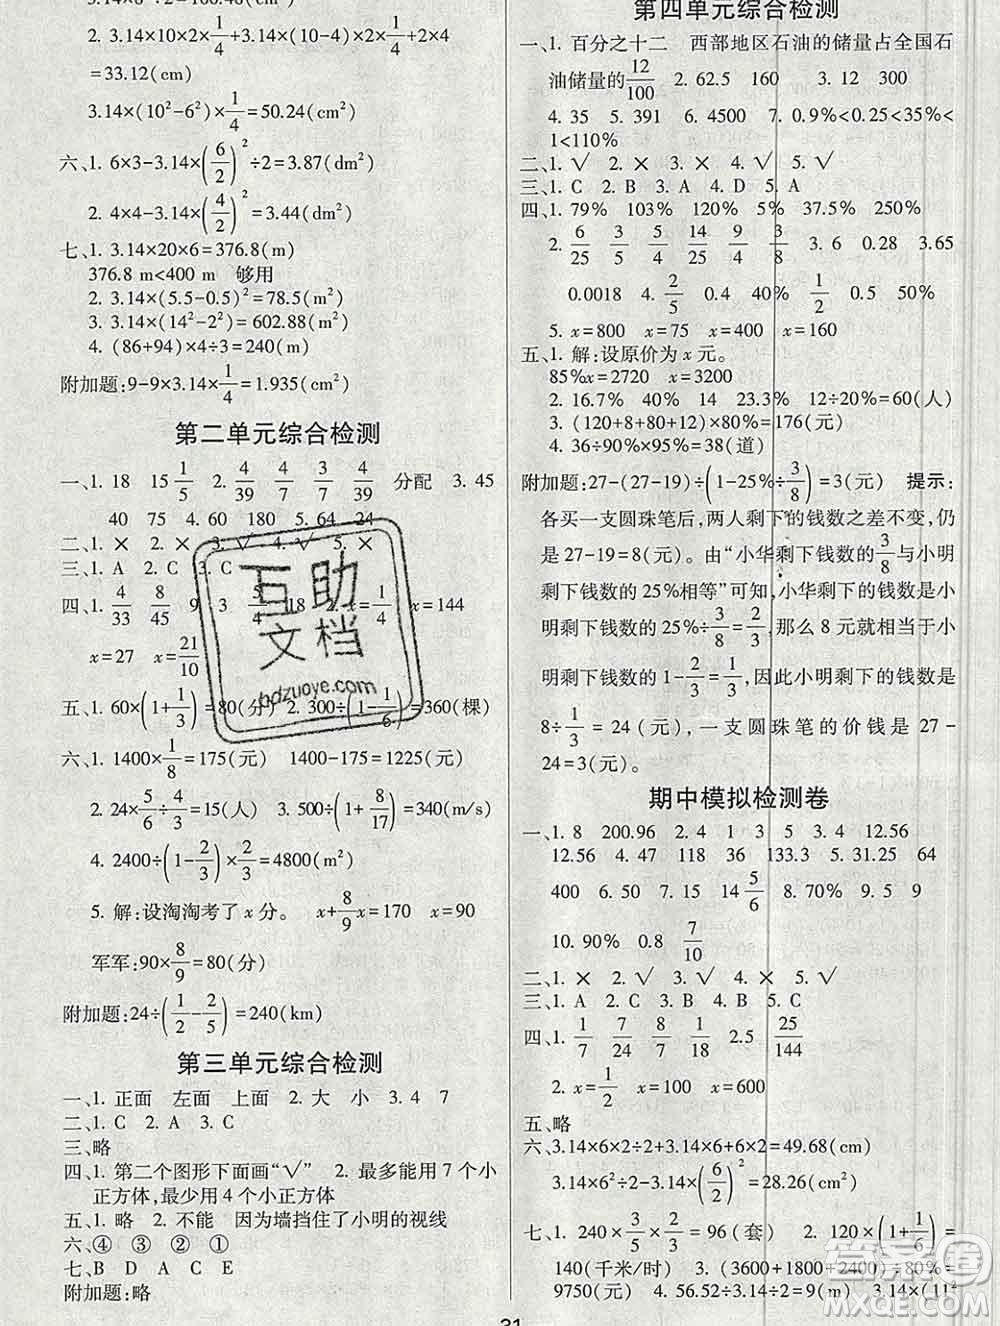 2. 3.14×10×2×1/4+3.14×6×2×1/4+2×4
=33.12(cm)
3.14×(10²-6²)×1/4=50.24(cm²)
六、1. 6×3-3.14×(6/2)²÷2=3.87(dm²)
2. 4×4-3.14×(4/2)²=3.44(dm²)
七、1. 3.14×20×6=376.8(m)
376.8 m<400 m 够用
2. 3.14×(5.5-0.5)²=78.5(m²)
3. 3.14×(14²-2²)=602.88(m²)
4. (86+94)×4÷3=240(m)
附加题:9-9×3.14×1/4=1.935(cm²)
第二单元综合检测
一、1. 18 15 1/5 2. 4/39 4/7 3/7 4/39 分配 3. 45
40 75 4. 60 180 5. 64 24
二、1. × 2. × 3. √ 4. √ 5. ×
三、1. A 2. C 3. C
四、1. 4/33 8/45 9 3 18 2. x=1/4 x=144
x=27 x=21/10
五、1. 60×(1+1/3)=80(分) 2. 300÷(1-1/6)=360(棵)
六、1. 1400×1/8=175(元) 1400-175=1225(元)
2. 24×5/6÷4/3=15(人) 3. 500÷(1+8/17)=340(m/s)
4. 2400÷(1-2/3)×2/3=4800(m²)
5. 解:设淘淘考了 x 分。 x+8/9x=170 x=90
军军:90×8/9=80(分)
附加题:24÷(1/2-2/5)=240(km)
第三单元综合检测
一、1. 正面 左面 上面 2. 大 小 3. 4 7
二、1. C 2. A 3. C
三、略
四、1. 第二个图形下面画“√” 2. 最多能用 7 个小
正方体,最少用 4 个小正方体
五、1. 略 2. 不能 因为墙挡住了小明的视线
六、④ ③ ② ①
七、B D A C E
附加题:略
第四单元综合检测
一、1. 百分之十二 西部地区石油的储量占全国石
油储量的12/100 2. 62.5 160 3. 12 300
4. 35 5. 91 6. 4500 7. 0.9%<0.25<35%<
1<110%
二、1. √ 2. × 3. × 4. √ 5. √
三、1. C 2. B 3. A 4. D 5. A
四、1. 79% 103% 120% 5% 37.5% 250%
2. 6/25 3/5 5/4 14/25 9/4 3/8 3. 6 0.28 3.65
0.0018 4. 2/5 0.4 40% 1/2 0.5 50%
5. x=800 x=75 x=400 x=160
五、1. 解:设原价为 x 元。
85%x=2720 x=3200
2. 16.7% 40% 14 23.3% 12÷20%=60(人)
3. (120+8+80+12)×80%=176(元)
4. 36÷90%×95%=38(道)
附加题:27-(27-19)÷(1-25%÷3/8)=3(元) 提示:
各买一支圆珠笔后,两人剩下的钱数之差不变,仍
是 27-19=8(元)。由“小华剩下钱数的3/8与小明
剩下钱数的25%相等”可知,小华剩下的钱数是小
明剩下钱数的 25%÷3/8=2/3,那么 8 元就相当于小
明剩下钱数的 1-2/3=1/3,因此小明剩下的钱数是
8÷1/3=24(元),一支圆珠笔的价钱是 27-
24=3(元)。
期中模拟检测卷
一、1. 8 200.96 2. 4 1 3 5 3. 4 12.56
12.56 4. 47 100 36 133.3 5. 31.25 64
400 6. 50 7. 15 14 5/6 8. 20 9. 5 9
10. 90% 0.8 7/10
二、1. × 2. √ 3. √ 4. × 5. √
三、1. A 2. C 3. A 4. B 5. C
四、1. 1/7 7/24 7/8 1/64 2.5 25/144
2. x=1/2 x=100 x=600
五、略
六、3.14×6×2÷2+3.14×6+6×2=49.68(cm)
3.14×6²÷2-3.14×(6/2)²=28.26(cm²)
七、1. 240×3/5×2/3=96(套) 2. 120×(1+1/6)=
140(千米/时) 3. (3600+1800+2400)÷80%=
9750(元) 4. 56.52÷3.14÷2=9(m) 3.14×(11²
31
互助
文档
hdzuoye.com
答案圈
MXQE.COM